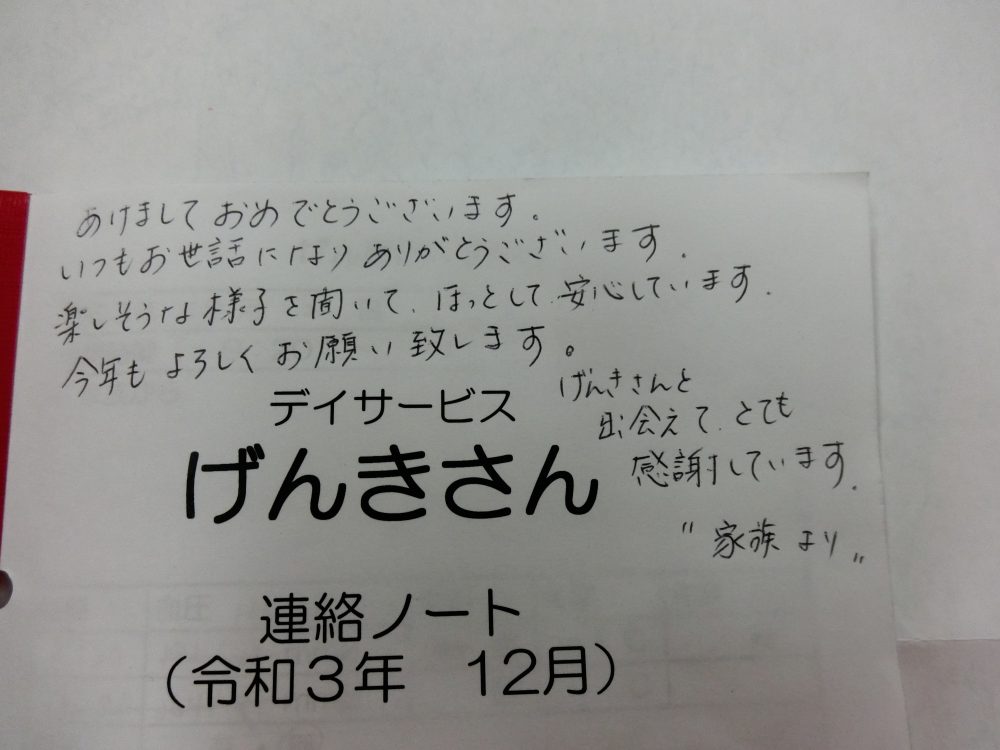 あけましておめでとうございます。
いつもお世話になりありがとうございます.
楽しそうな様子を聞いて、ほっとして、安心しています.
今年もよろしくお願い致します。
デイサービス
げんきさん
げんきさんと
出会えて、とても
感謝しています.
"家族より"
連絡ノート
(令和3年 12月)